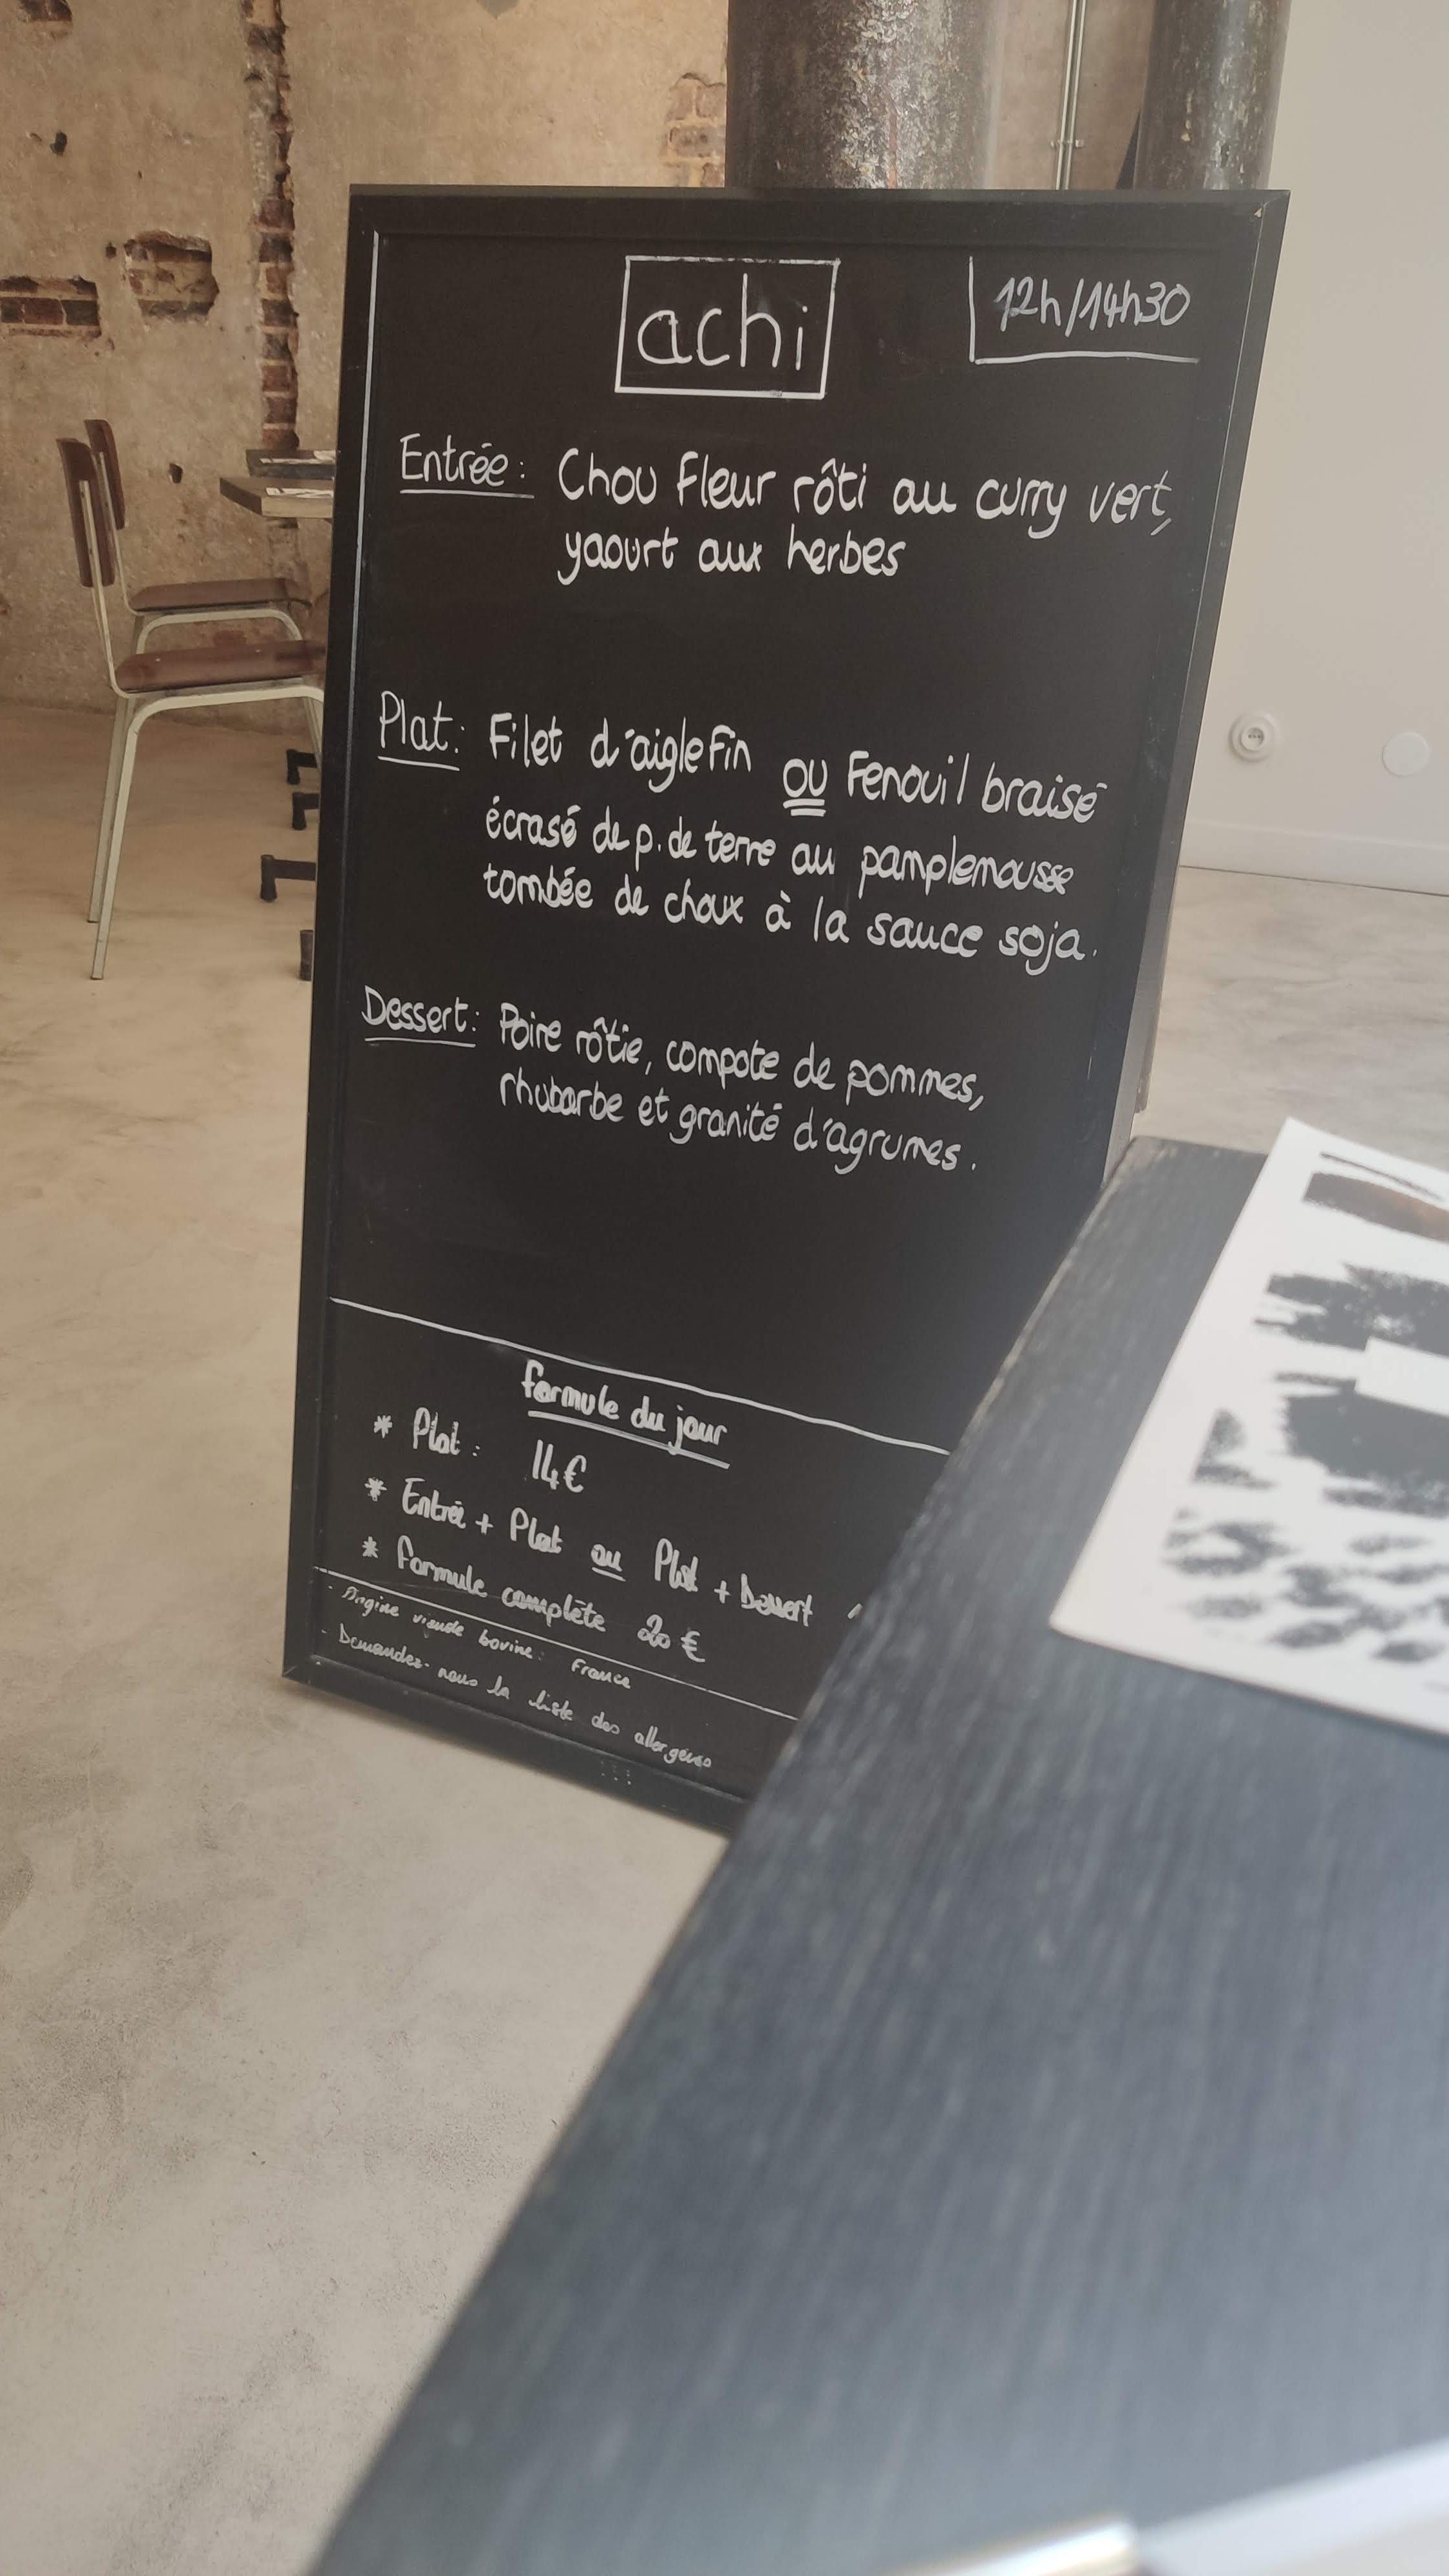 achi
12h/14h30
Entrée: Chou Fleur rôti au curry vert,
yaourt aux herbes
Plat: Filet d'aiglefin ou Fenouil braisé
écrasé de p. de terre au pamplemousse
tombée de choux à la sauce soja.
Dessert: Poire rôtie, compote de pommes,
rhubarbe et granité d'agrumes.
formule du jour
* Plat: 14€
* Entrée + Plat ou Plat + Dessert
* formule complète 20€
- Origine viande bovine: France
- Demandez-nous la liste des allergènes